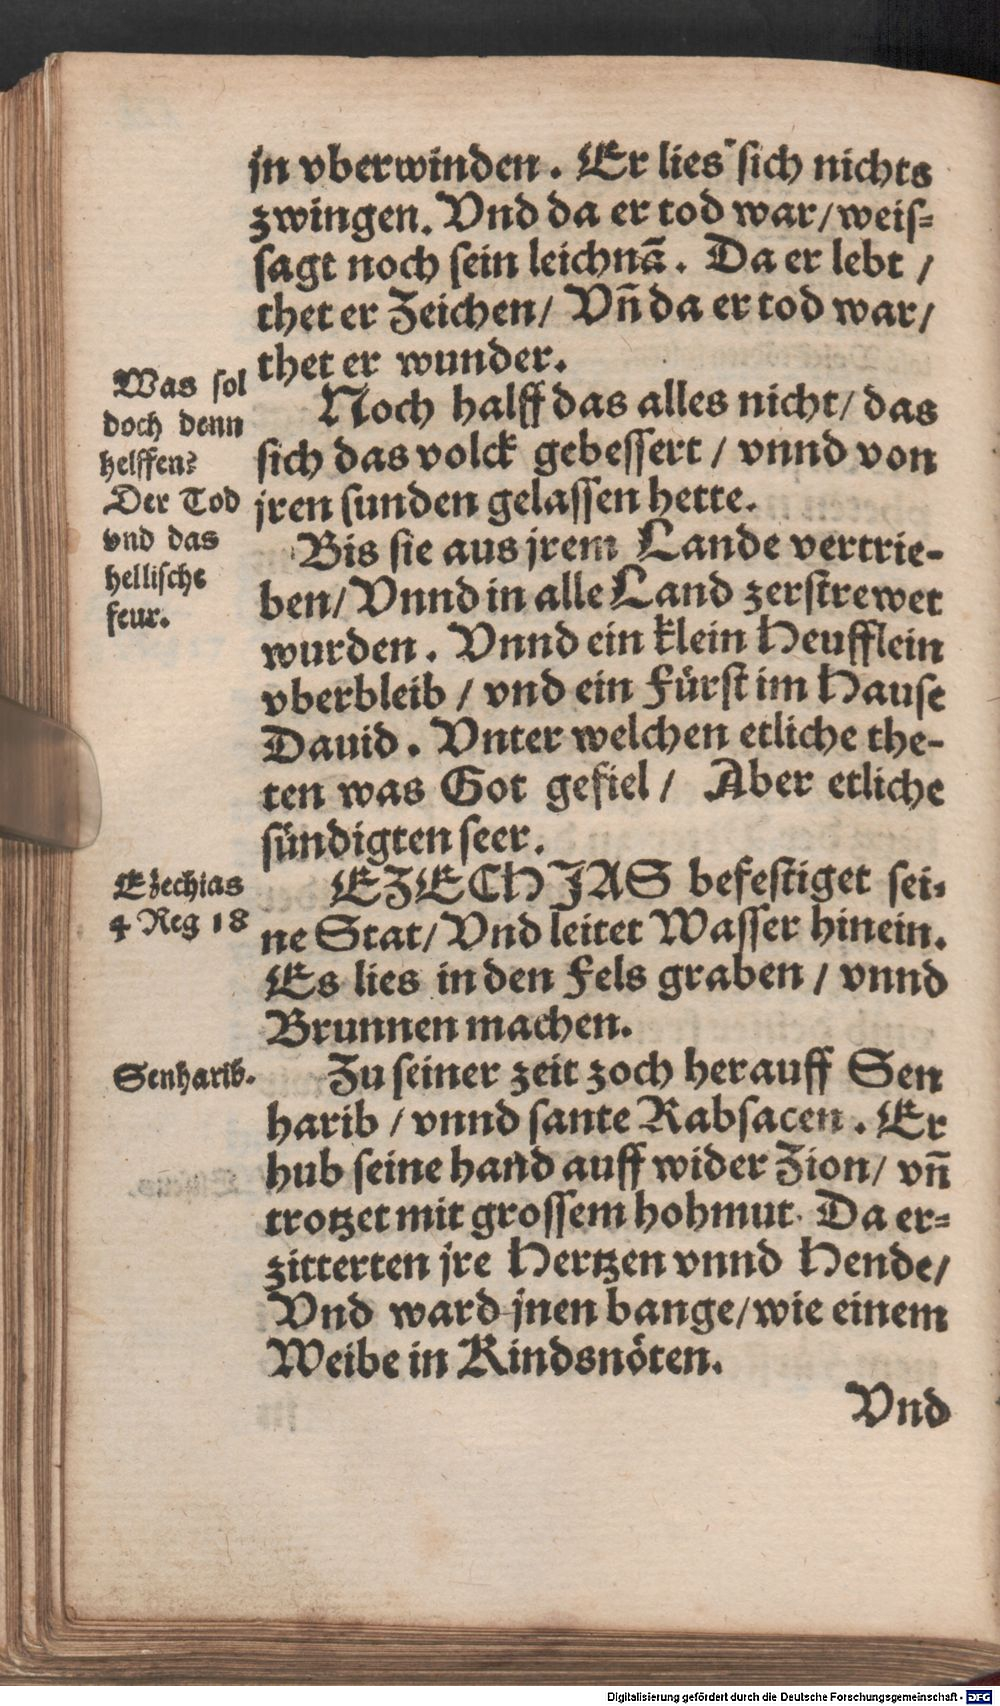 jn vberwinden. Er lies sich nichts
zwingen. Vnd da er tod war/weis=
sagt noch sein leichnā. Da er lebt /
thet er Zeichen/ Vñ da er tod war/
thet er wunder.
Was sol
doch denn
helffen?
Der Tod
vnd das
hellische
feur.
Noch halff das alles nicht/ das
sich das volck gebessert / vnnd von
jren sunden gelassen hette.
Bis sie aus jrem Lande vertrie-
ben/ Vnnd in alle Land zerstrewet
wurden. Vnnd ein klein Heufflein
vberbleib / vnd ein Fürst im Hause
Dauid. Vnter welchen etliche the-
ten was Got gefiel / Aber etliche
sündigten seer.
Ezechias
4 Reg 18
EZECHJAS befestiget sei-
ne Stat/ Vnd leitet Wasser hinein.
Es lies in den Fels graben / vnnd
Brunnen machen.
Senharib.
Zu seiner zeit zoch herauff Sen
harib / vnnd sante Rabsacen. Er
hub seine hand auff wider Zion/ vñ
trotzet mit grossem hohmut. Da er=
zitterten jre Hertzen vnnd Hende/
Vnd ward jnen bange/wie einem
Weibe in Kindsnöten.
Vnd
Digitalisierung gefördert durch die Deutsche Forschungsgemeinschaft - DFG